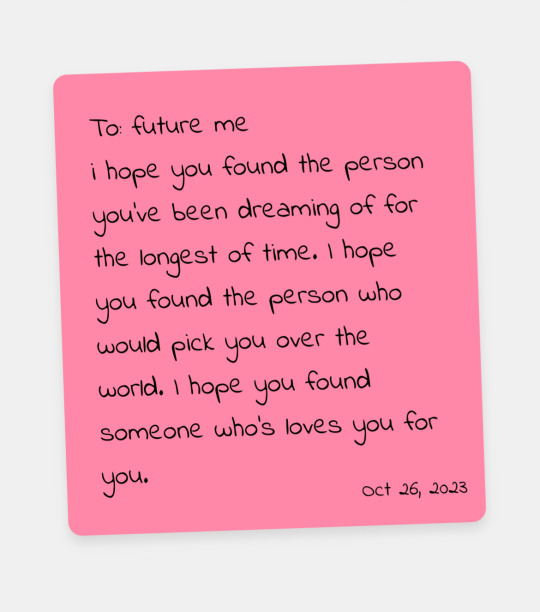 To: future me
i hope you found the person
you've been dreaming of for
the longest of time. I hope
you found the person who
would pick you over the
world. I hope you found
someone who's loves you for
you.
Oct 26, 2023